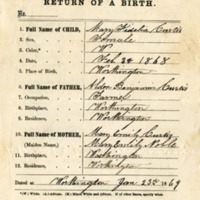 RETURN OF A BIRTH.
No.
1. Full Name of CHILD, Mary Fidelia Curtis
2. Sex, Female
3. Color,* W
4. Date of Birth, Feb 24 1868
5. Place of Birth, Worthington
6. Full Name of FATHER, Benjamin Curtis
7. Occupation, Farmer
8. Birthplace, Worthington
9. Residence, Worthington
10. Full Name of MOTHER, Mary Emily Curtis
(Maiden Name) Mary Emily Noble
11. Birthplace, Washington
12. Residence, Worthington
Dated at Worthington Jan 23d 1869